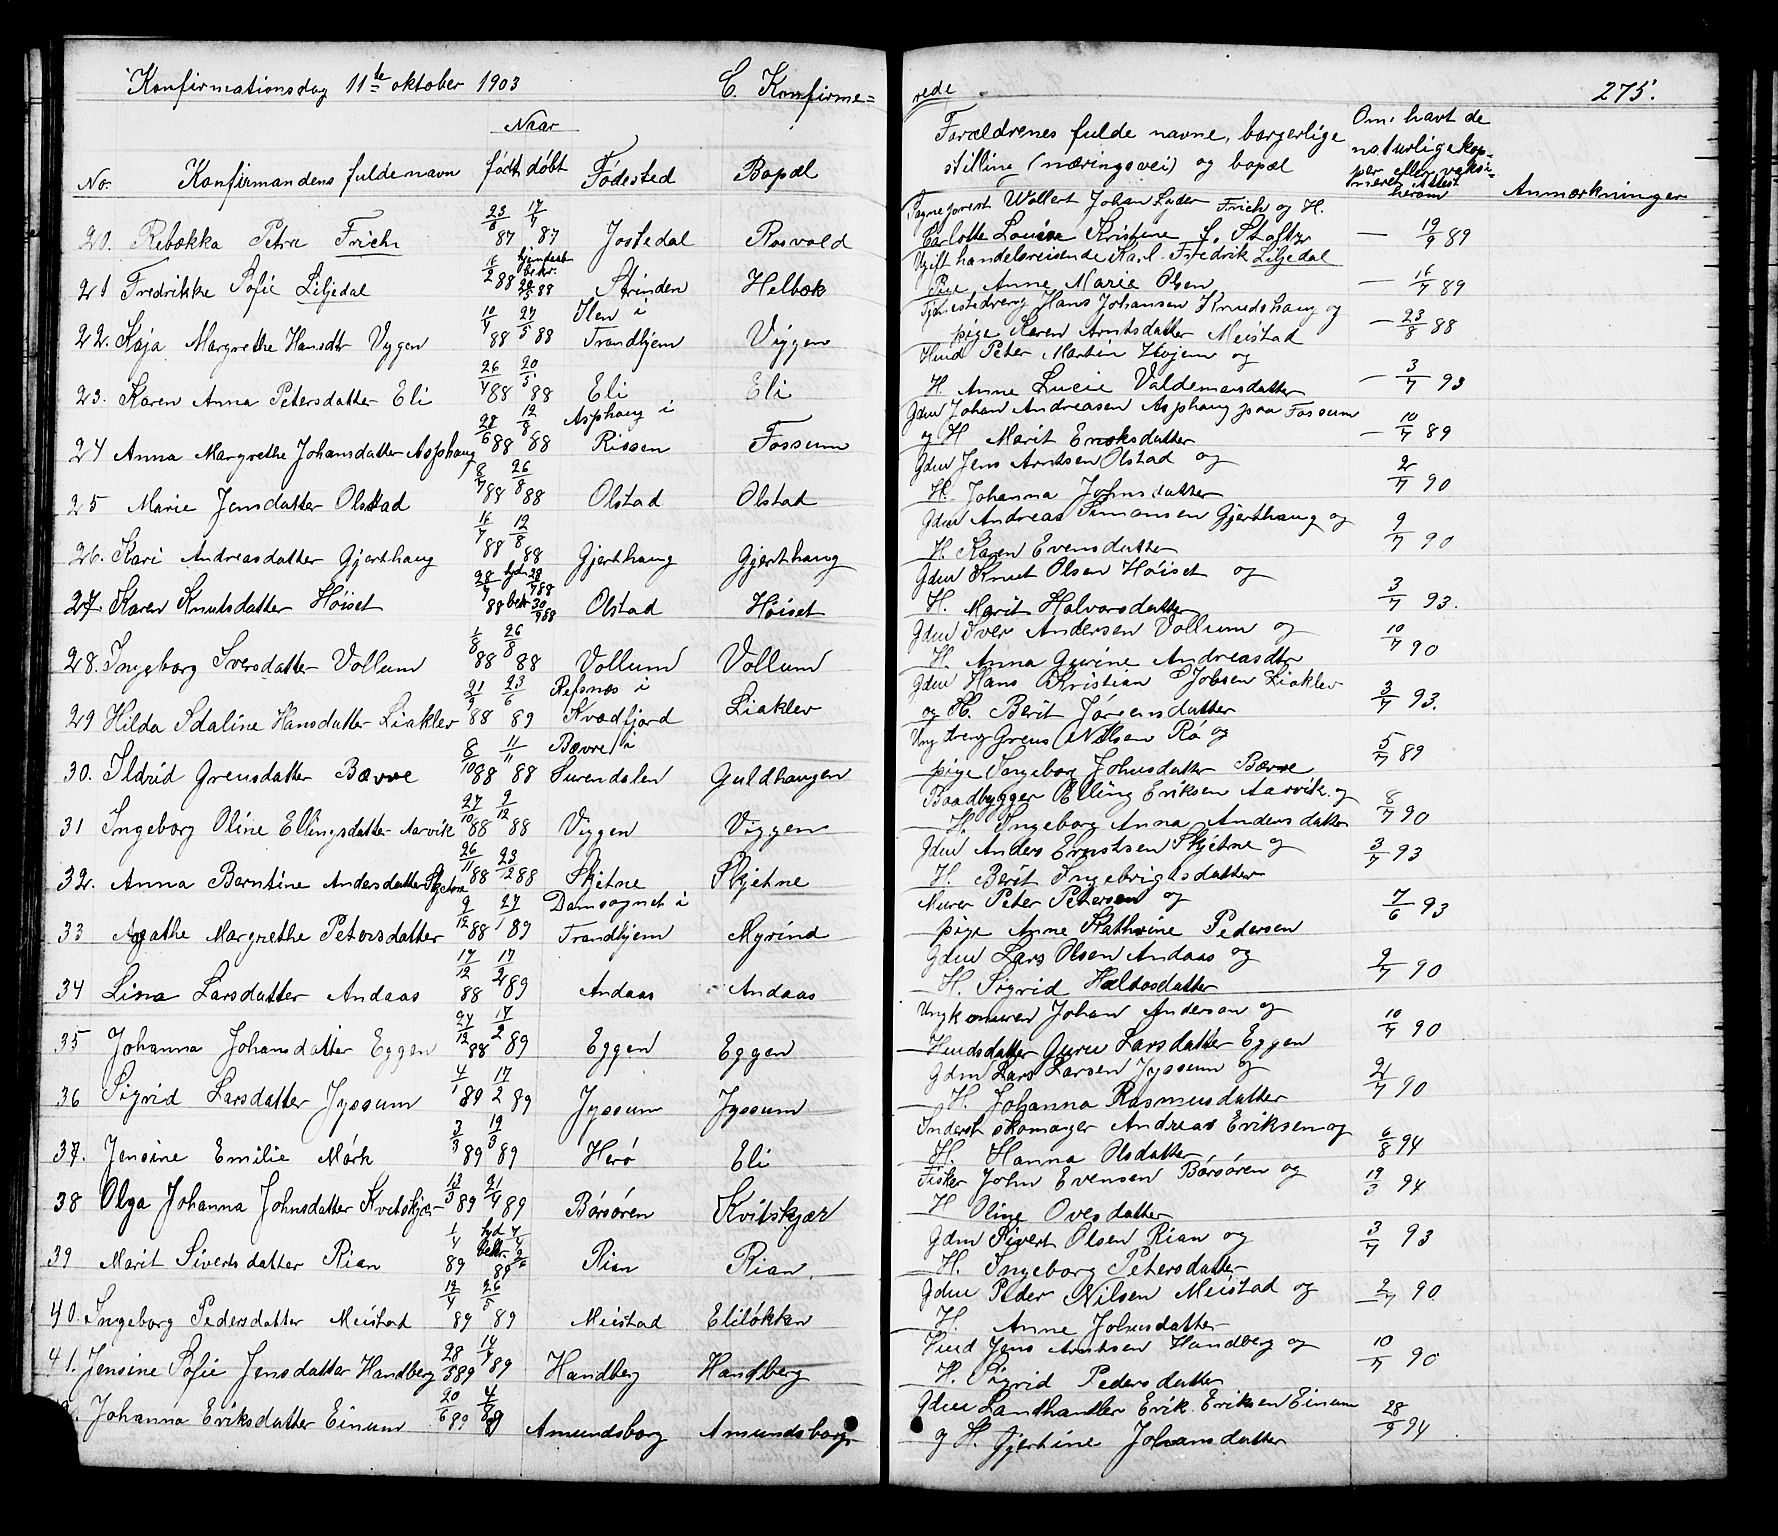 Konfirmationsdag 11te oktober 1903
C. Konfirme=
rede
275.
No.
Konfirmandens fulde navn
Naar
født
døbt
Fødested
Bopæl
Forældrenes fulde navne, borgerlige
stilling (næringsvei) og bopæl
Om: havt de
naturlige kop-
per eller vaksi-
neret. Attest
herom
Anmærkninger
20. Rebækka Petra Frich 23/6 87 17/7 87 Jostedal Rosvold
Sogneprest Wollert Johan Lyder Frich og H.
Carlotte Louise Kristine f. Stoltz — 19/9 89
21 Fredrikke Sofie Liljedal 16/2 88 hjemdøbt bekr. 20/5 88 Strinden Helbæk
Ugift handelsreisende Karl Fredrik Liljedal
Pige Anne Marie Olsen — 16/7 89
22. Kaja Margrethe Hansdtr Vggen 10/4 88 27/5 88 Ilen i Trondhjem Viggen
Tjenestedreng Hans Johansen Knudshaug og
pige Karen Arntsdatter Meistad — 23/8 88
23. Karen Anna Petersdatter Eli 26/4 88 20/5 88 Eli Eli
Husmd Peter Martin Hojem og
H. Anne Lucie Valdemarsdatter — 3/7 93
24 Anna Margrethe Johansdatter Asphaug 28/6 88 12/8 88 Asphaug i Rissen Fossum
Gdm Johan Andreasen Asphaug paa Fossum
og H Marit Enoksdatter — 10/7 89
25 Marie Jensdatter Olstad 8/7 88 26/8 88 Olstad Olstad
Gdm Jens Arntsen Olstad og
H. Johanna Johnsdatter 2/7 90
26. Kari Andreasdatter Gjerthaug 16/7 88 12/8 88 Gjerthaug Gjerthaug
Gdm Andreas Simonsen Gjerthaug og
H. Karen Evensdatter 9/7 90
27 Karen Knutsdatter Høiset 28/7 88 hjd 29/7 88 bekr 30/9 88 Olstad Høiset
Gdm Knut Olsen Høiset og
H. Marit Halvorsdatter 3/7 93.
28. Ingeborg Iversdatter Vollum 1/8 88 26/8 88 Vollum Vollum
Gdm Iver Andersen Vollum og
H. Anna Gurine Andreasdtr 10/7 90
29 Hilda Idaline Hansdatter Liaklev 21/9 88 23/6 89 Refsnæs i Kvædfjord Liaklev
Gdm Hans Kristian Jobsen Liaklev
og H. Berit Jørgensdatter 3/7 93.
30. Ildrid Grensdatter Bævre 8/10 88 11/11 88 Bævre i Surendalen Guldhaugen
Ung dreng Grens Nilsen Rø og
pige Ingeborg Johnsdatter Bævre 5/7 89
31 Ingeborg Oline Ellingsdatter Aarvik 27/10 88 9/12 88 Viggen Viggen
Baadbygger Elling Eriksen Aarvik og
H. Ingeborg Anna Andersdatter 8/7 90
32. Anna Berntine Andersdatter Skjetne 26/11 88 23/12 88 Skjetne Skjetne
Gdm Anders Ernstsen Skjetne og
H. Berit Ingebrigtsdatter 3/7 93
33 Agathe Margrethe Petersdatter 9/12 88 27/1 89 Domsognet i Trondhjem Myrind
Murer Peter Petersen og
pige Anne Kathrine Pedersen 7/6 93
34 Lina Larsdatter Andaas 17/12 88 17/2 89 Andaas Andaas
Gdm Lars Olsen Andaas og
H. Sigrid Haltosdatter 9/7 90
35 Johanna Johansdatter Eggen 24/12 88 17/2 89 Eggen Eggen
Ungk murer Johan Anderson og
Husdsdatter Guru Larsdatter Eggen 10/7 90
36 Sigrid Larsdatter Jyssum 4/1 89 17/2 89 Jyssum Jyssum
Gdm Lars Larsen Jyssum og
H. Johanna Rasmusdatter 2/7 90
37. Jensine Emilie Mørk 3/3 89 19/3 89 Herø Eli
Inderst skomager Andreas Eriksen og
H. Hanna Olsdatter 6/8 94
38 Olga Johanna Johnsdatter Kvitskjær 13/3 89 21/4 89 Børsøren Kvitskjær
Fisker John Evensen Børsøren og
H Oline Ovesdatter 19/3 94
39 Marit Sivertsdatter Rian 1/4 89 hjd 7/4 bekr. 89 Rian Rian.
Gdm Sivert Olsen Rian og
H. Ingeborg Petersdatter 3/7 93
40. Ingeborg Pedersdatter Meistad 12/4 89 26/5 89 Meistad Eliløkken
Gdm Peder Nilsen Meistad og
H. Anne Johnsdatter 2/7 90
41. Jensine Sofie Jensdatter Handberg 28/5 89 14/7 89 Handberg Handberg
Husmd Jens Arntsen Handberg og
H. Sigrid Pedersdatter 10/7 90
Johanna Eriksdatter Einum 20/6 89 4/8 89 Amundsborg Amundsborg
Gdm Landhandler Erik Eriksen Einum
og H. Gjertine Johansdatter 28/9 94